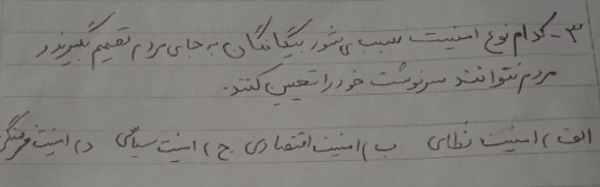 ۳- کدام نوع امنیت سبب می‌شود بیگانگان به جای مردم تصمیم بگیرند و
مردم نتوانند سرنوشت خود را تعیین کنند.
الف) امنیت نظامی ب) امنیت اقتصادی ج) امنیت سیاسی د) امنیت فرهنگی